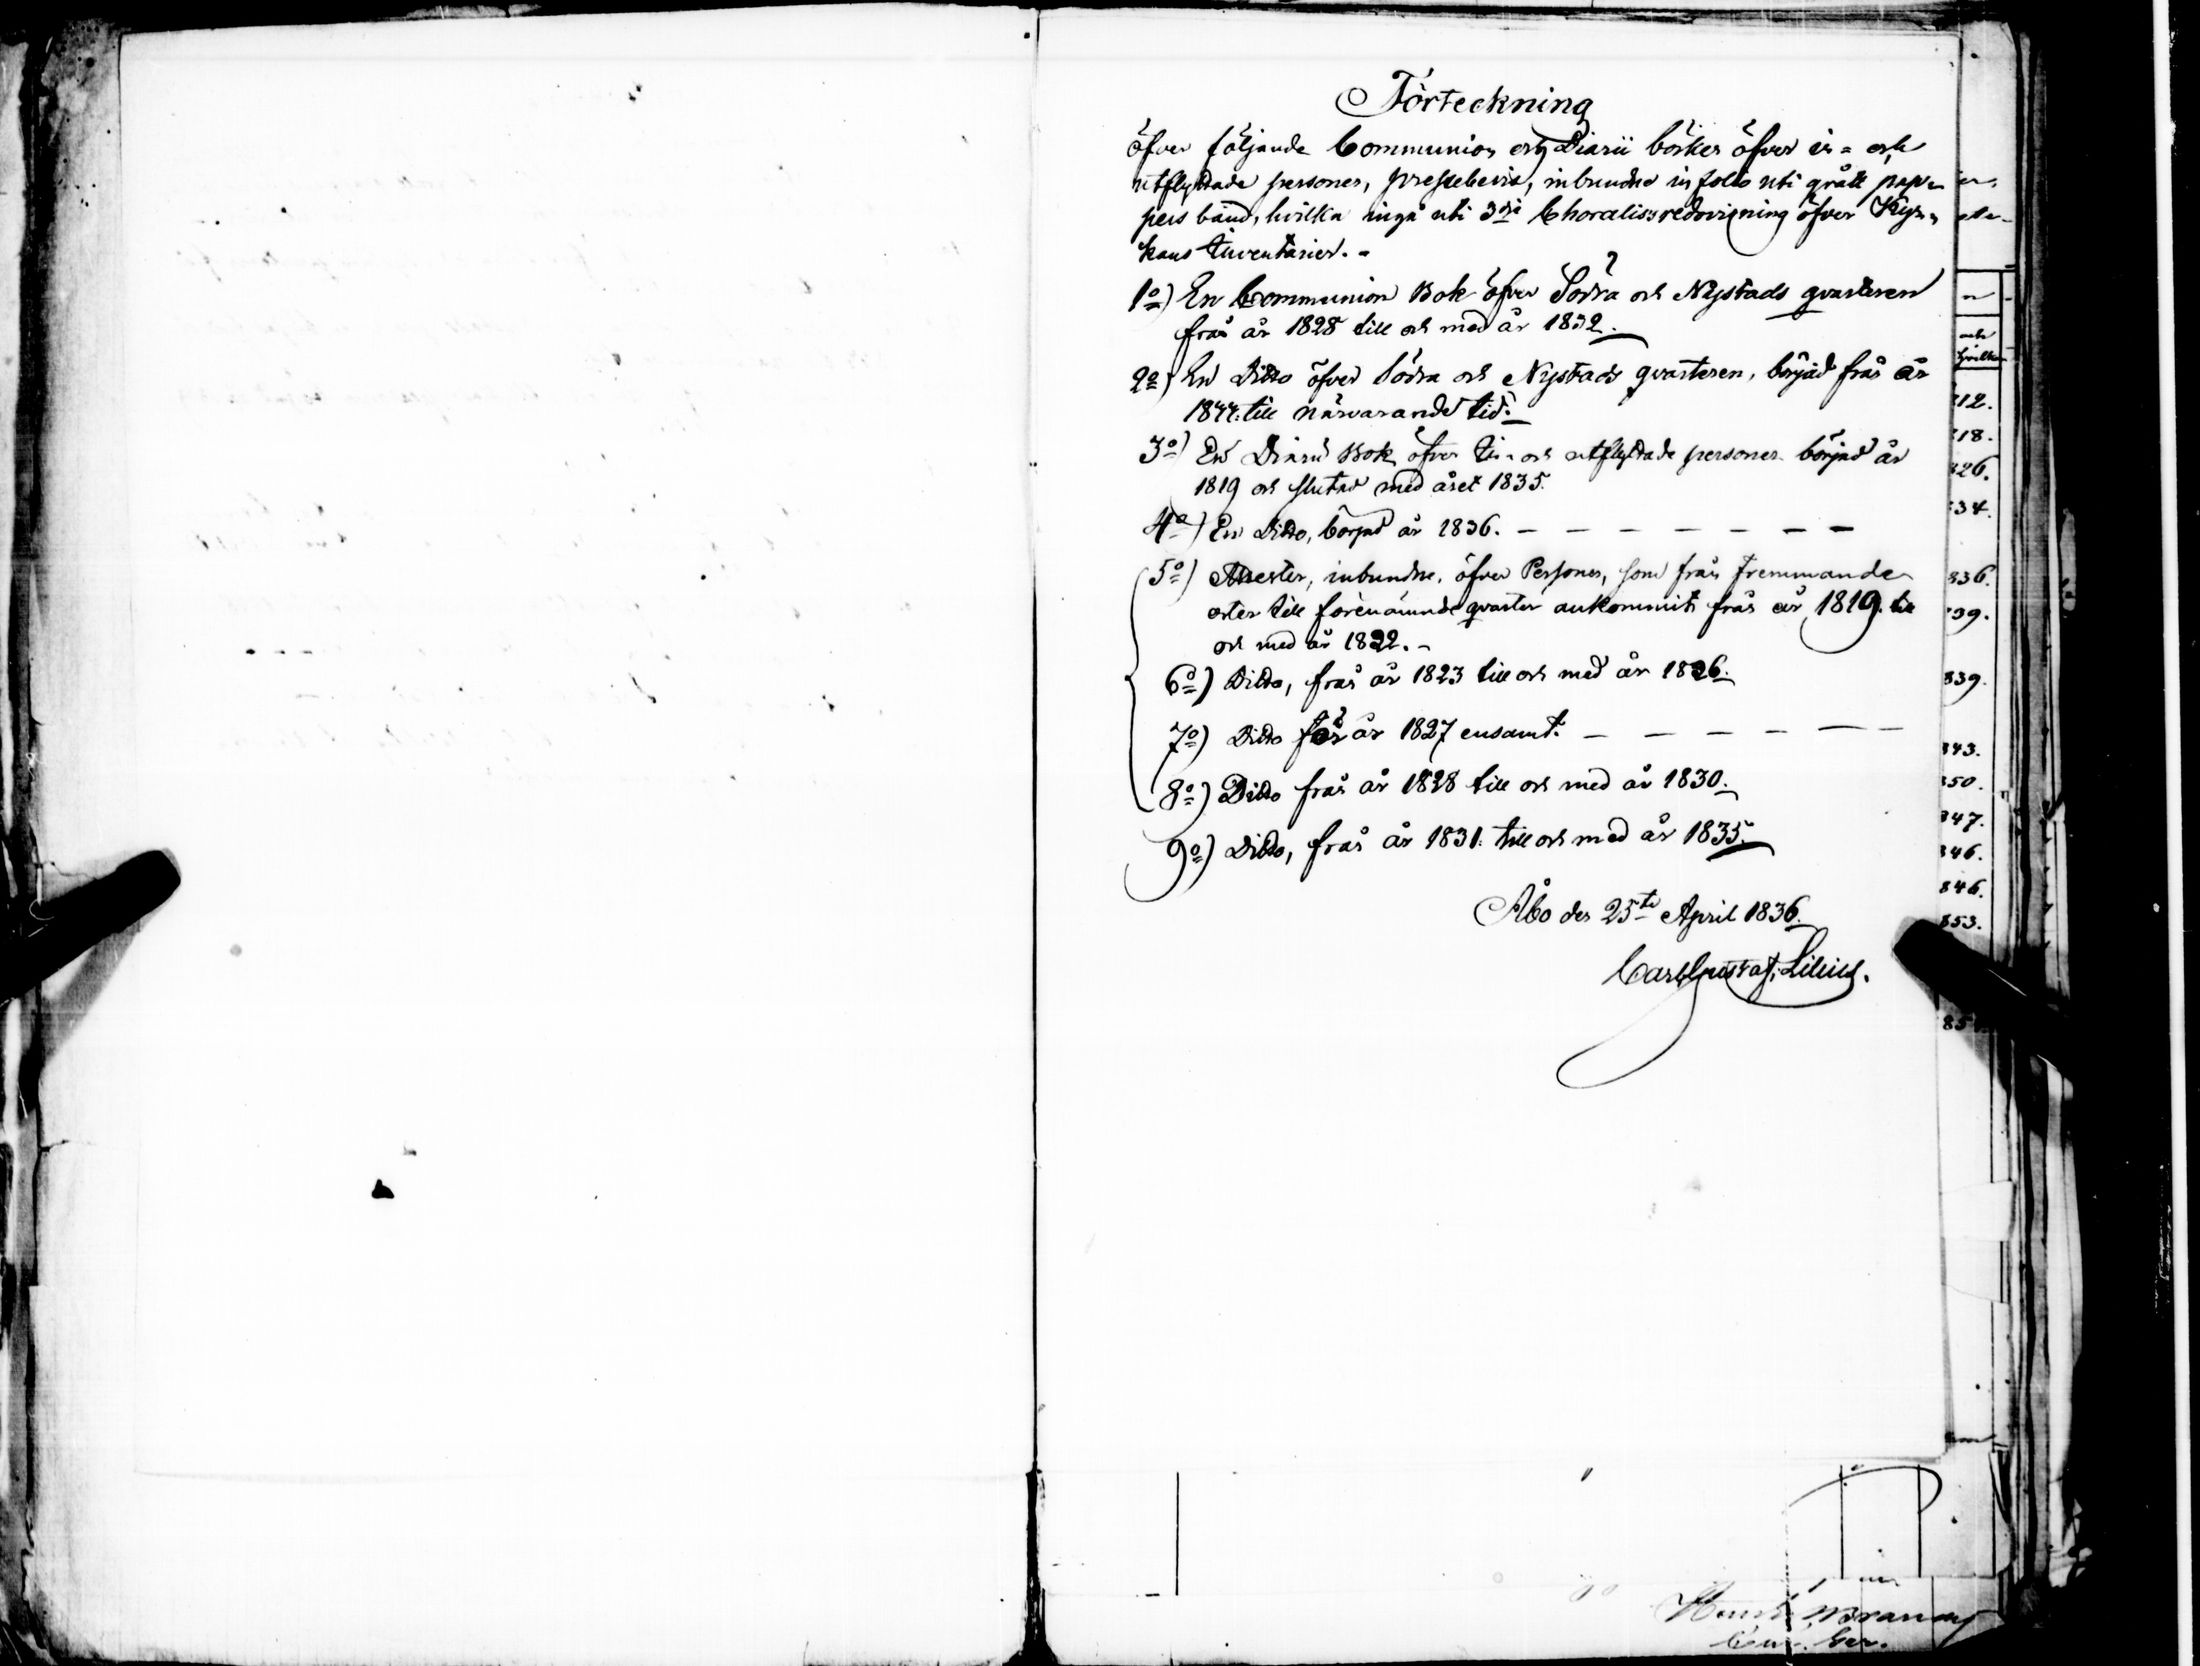 Förteckning
öfver följande Communion och Diarii böcker öfver in- och
utflyttade personer, inbundne in folio uti grått pap-
pers band, hvilka ingå uti 3dje redovisning öfver Kyr-
kans Inventarier.-
1o) En Communion Bok öfver Södra och Nystads qvarteren
från år 1828 till och med år 1832.
2o) En Ditto öfver Södra och Nystads qvarteren, börjad från år
till närvarande tid.
3o) En Diarii Bok öfver in- och utflyttade personer börjad år
1819 och slutad med året 1835.
4o) En Ditto, börjad år 1836. - - - - - - - -
5o) Attester, inbundne, öfver Personer, som från fremmande
orter till förenämnde qvarter ankommit från år 1819. till
och med år 1822.-
6o) Ditto, från år 1823 till och med år 1826.
7o) Ditto för år 1827 ensamt. - - - - - -
8o) Ditto från år 1828 till och med år 1830.
9o) Ditto, från år 1831. till och med år 1835.
Åbo den 25te April 1836.
Carl Gustaf Lilius.
12.
18.
26.
34.
836.
39.
839.
843.
850.
847.
846.
846.
853.